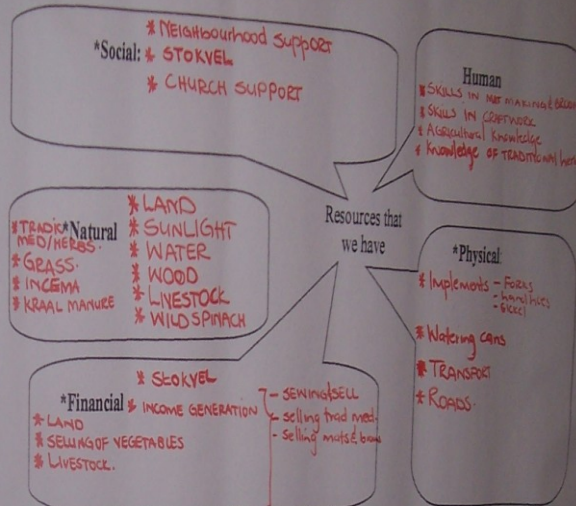 *Social:
* NEIGHbourhood Support
* STOKVEL
* CHURCH SUPPORT
Human
* SKILLS IN MAT MAKING &
* SKILLS IN CRAFTWORK
* AGRicultural Knowledge
* Knowledge OF TRADITIONAL
Resources that
we have
*Natural
* TRADIC
MED/HERBS.
* GRASS.
* INCEMA
* KRAAL MANURE
* LAND
* SUNLIGHT
* WATER
* WOOD
* LIVESTOCK
* WILD SPINACH
*Physical
* Implements - FORKS
* Watering cans
* TRANSPORT
* ROADS.
*Financial
* STOKVEL
* INCOME GENERATION
- SEWING & SELL
- selling trad med.
- selling mats &
* LAND
* SELLING OF VEGETABLES
* LIVESTOCK.